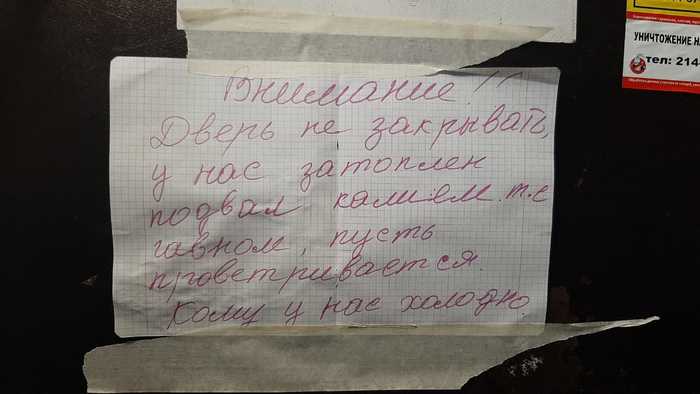 Внимание!!
Дверь не закрывать,
у нас затоплен
подвал калием. т.е
гавном, пусть
проветривается.
Кому у нас холодно.
УНИЧТОЖЕНИЕ НА
тел: 214